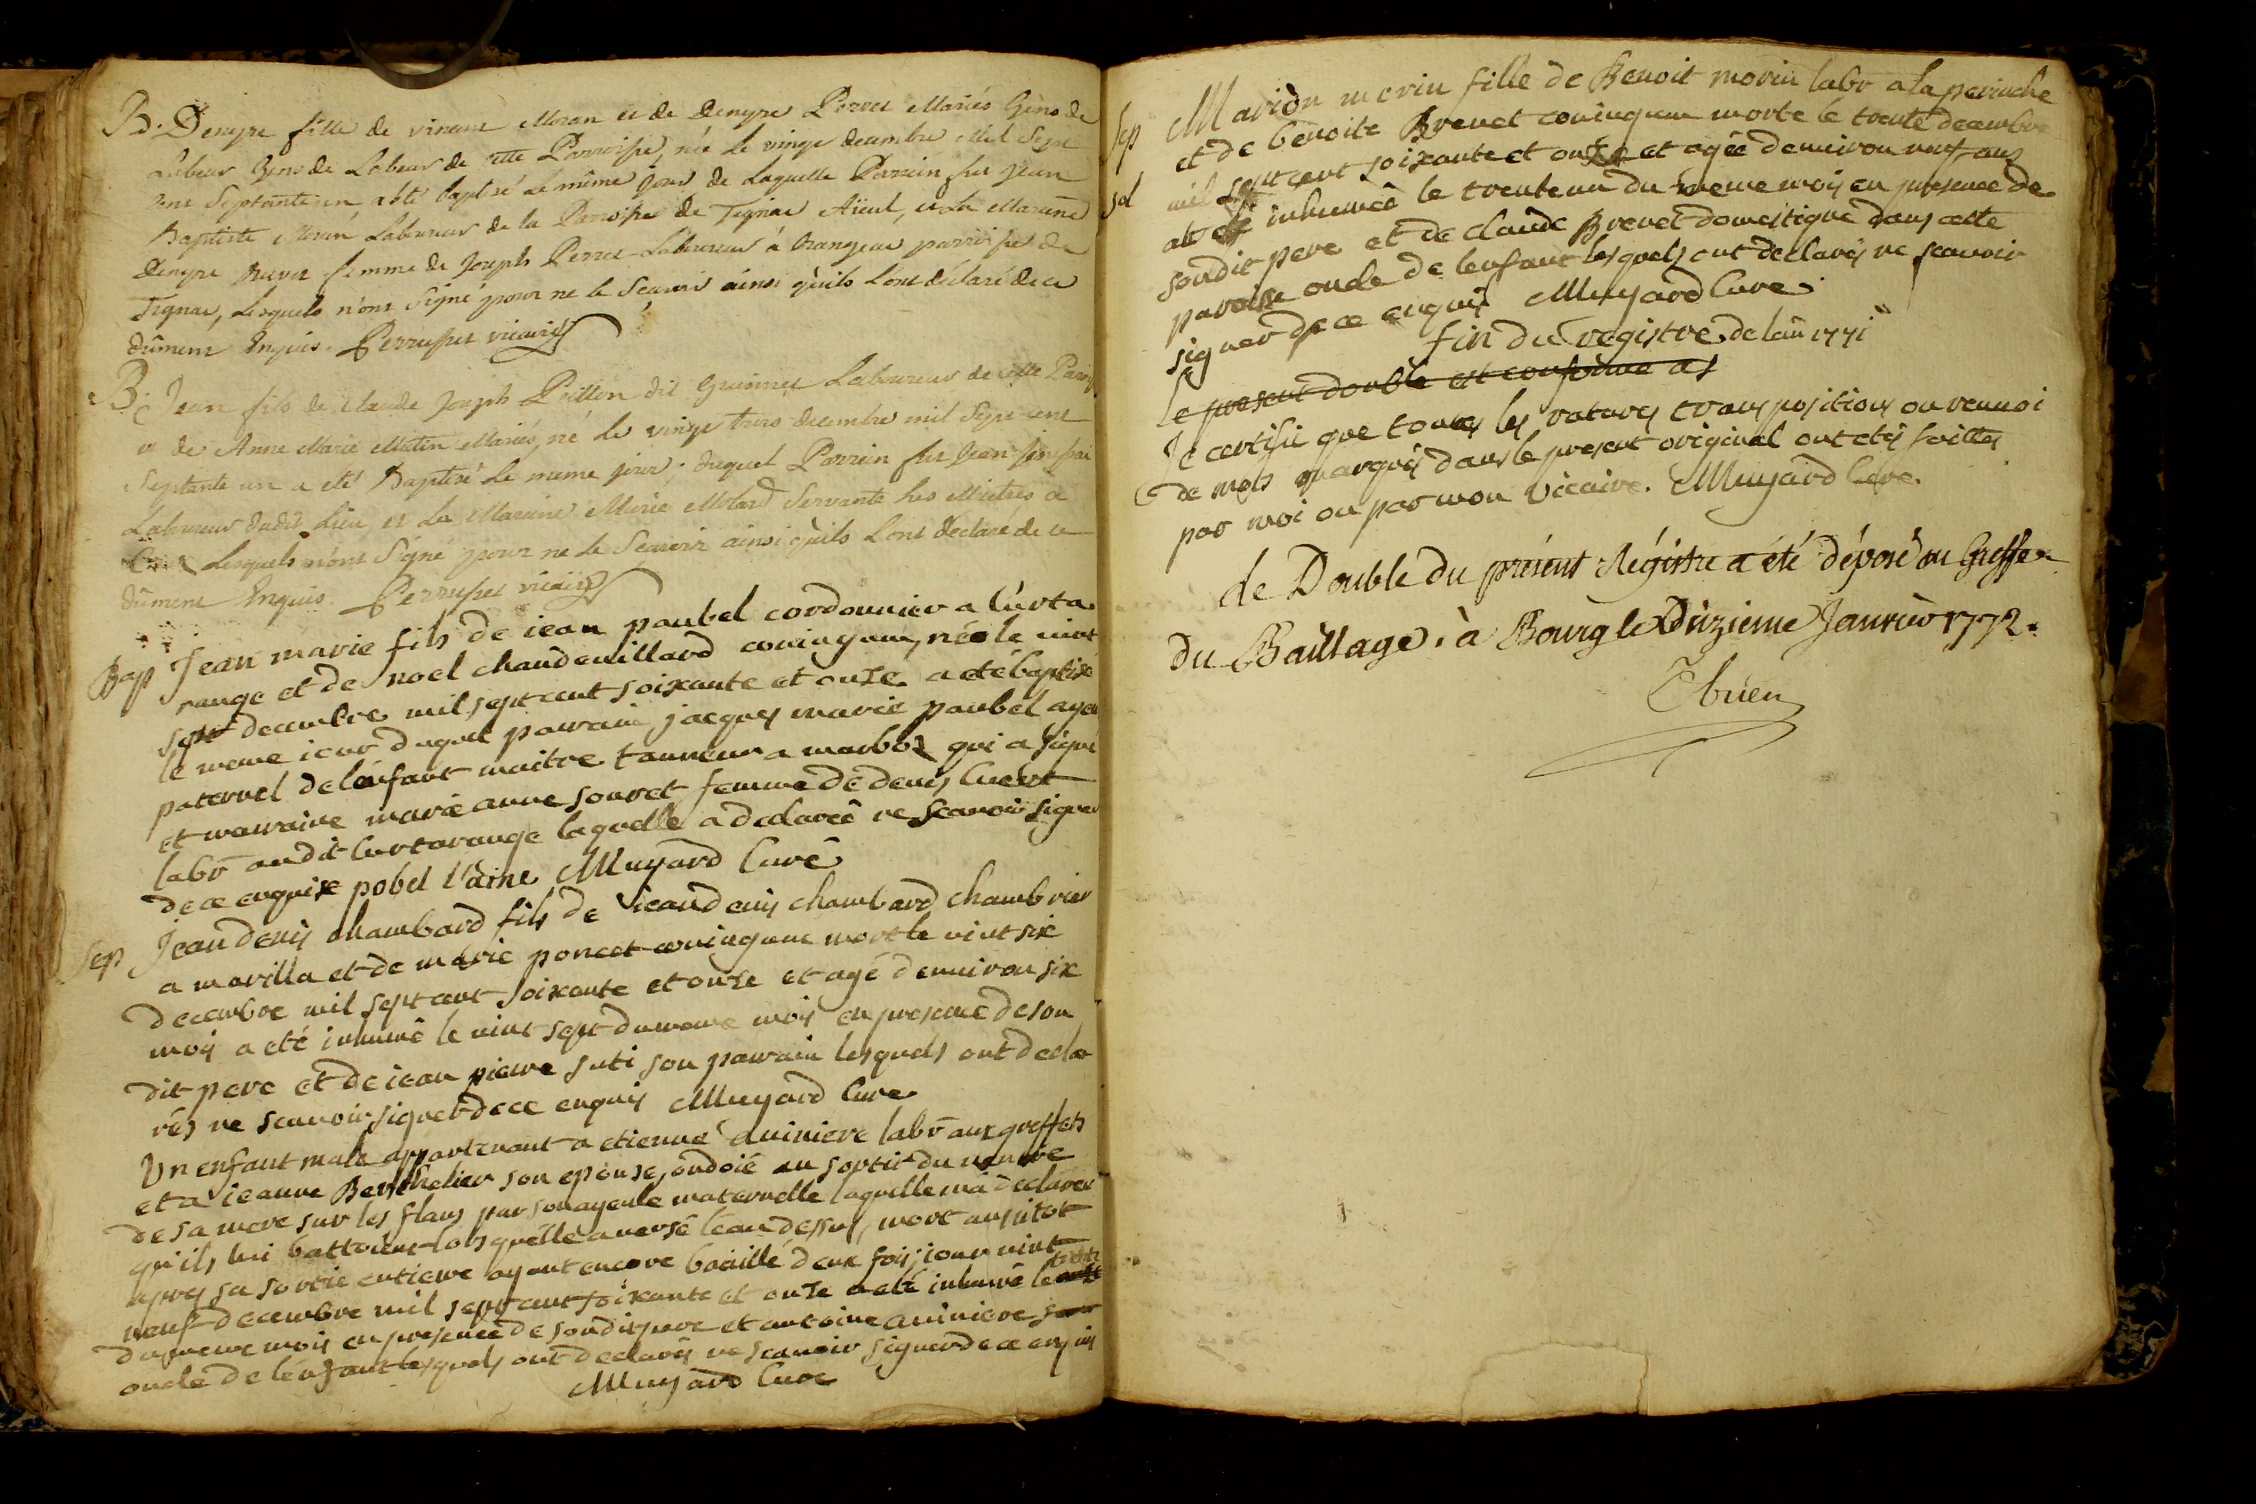 B. Denyse fille de vincent Moran et de Denyse Perret Mariés Gens de
Labeur Gens de Labeur de cette Parroisse, née le vingt decembre Mil Sept
cent Septante un a été baptisé Le même Jour de Laquelle Parrein fut Jean
Baptiste Moran Laboureur de la Parroisse de Tignac Aïeul, et la Maraine
Denyse femme de Joseph Perret Laboureur à parroisse de
Tignac, Lesquels n'ont Signé pour ne le Scavoir ainsi qu'ils L'ont déclaré de ce
dûment Enquis. Perruset vicaire
B. Jean fils de Claude Joseph Poitton dit Guionnet Laboureur de cette Parois
et de Anne Marie Matin Mariés, né le vingt trois decembre mil Sept cent
Septante un a eté Baptisé Le meme jour; duquel Parrein fut Jean
Laboureur dudit Lieu, et La Maraine Marie Molard Servante
Lesquels n'ont Signé pour ne le Scavoir ainsi qu'ils L'ont déclaré de ce
dûment Enquis. Perruset vicaire
Bap Jean marie fils de iean paubel cordonnier a curta
range et de noel chaudeuillard coniugum, né le vint
sept decembre mil sept cent soixante et onze a eté baptisé
le meme iour duquel parrain jacques marie paubel ayeu
paternel de l'enfant maitre tanneur a marboz qui a signé
et marraine marie anne souret femme de denis Cuert
labr audit Curtarange laquelle a declareé ne scauoir signer
de ce enquise pobel l'aine Muyard Curé
Sep Jean denis chambard fils de iean denis chambard chambrier
a marilla et de marie poncet coniugum mort le vint six
decembre mil sept cent soixante et onze et agé d'enuiron six
mois a eté inhumê le vint sept du meme mois en presence de son
dit pere et de iean pierre suti son parrain lesquels ont decla
rés ne scauoir signer de ce enquis Muyard Cure
Un enfant male appartenant a etienne auiniere labr aux greffets
et a ieanne Berthelier son epouse, ondoié au sortir du ventre
de sa mere sur les flans par son ayeule maternelle laquelle m'a declarer
qu'ils lui battoient lors qu'elle a versé l'eau dessus, mort aussitot
apres sa sortie entierre ayant encore baaillé deux fois; iour vint
neuf decembre mil sept cent soixante et onze a eté inhumê le
du meme mois en presence de son dit pere et antoine auiniere
oncle de l'enfant lesquels ont declarés ne scauoir signer de ce enquis
Muyard Cure
Sep Marion morin fille de Benoit morin labr a la perinche
et de benoite Brevet coniugum morte le trente decembre
sol mil sept cent soixante et onze et agée d'enuiron neuf ans
a eté inhumeê le trente un du meme mois en presence de
son dit pere et de claude Brevet domestique dans cette
paroisse oncle de l'enfant lesquels ont declarés ne scauoir
signer de ce enquis Muyard Cure
fin du registre de l'an 1771
le present double est conforme as
Je certifie que toutes les ratures transpositions ou renuoi
de mots marqués dans le present original ont etés faittes
par moi ou par mon vicaire. Muyard Cure.
le Double du présent Régistre a été déposé au Greffe
du Baillage à Bourg le Duzieme Janvier 1772.